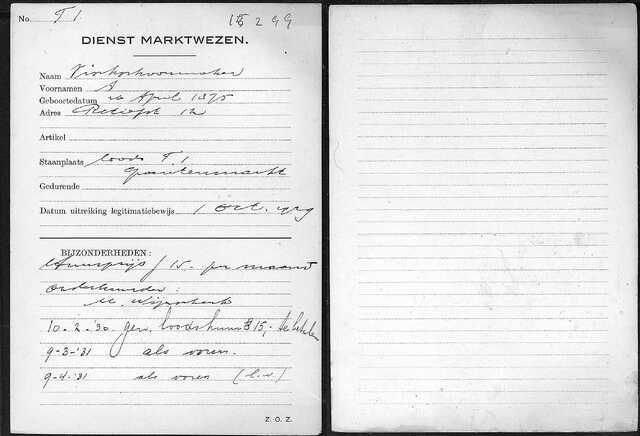 No. T 1 15299
DIENST MARKTWEZEN.
Naam Vischschoonmaker
Voornamen A
Geboortedatum 16 April 1875
Adres Retiefstr 12
Artikel
Staanplaats loods T. 1
Groentenmarkt
Gedurende
Datum uitreiking legitimatiebewijs 1 Oct. 1929
BIJZONDERHEDEN:
Huurprijs f 15.- per maand
Onderhuurder:
M.
10-2-'30 gew. loodshuur f 15,- te betalen
9-3-'31 als voren.
9-4-'31 als voren
Z. O. Z.